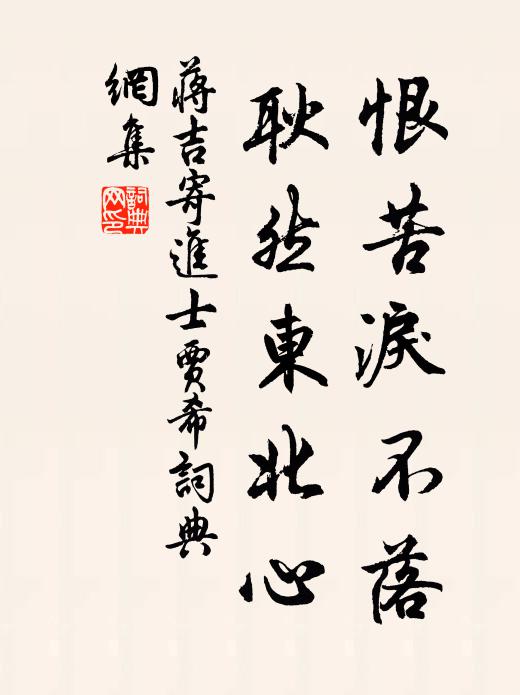 恨苦淚不落
耿然東北心
蔣吉寄進士賈希詞典
網集
詞典
网印